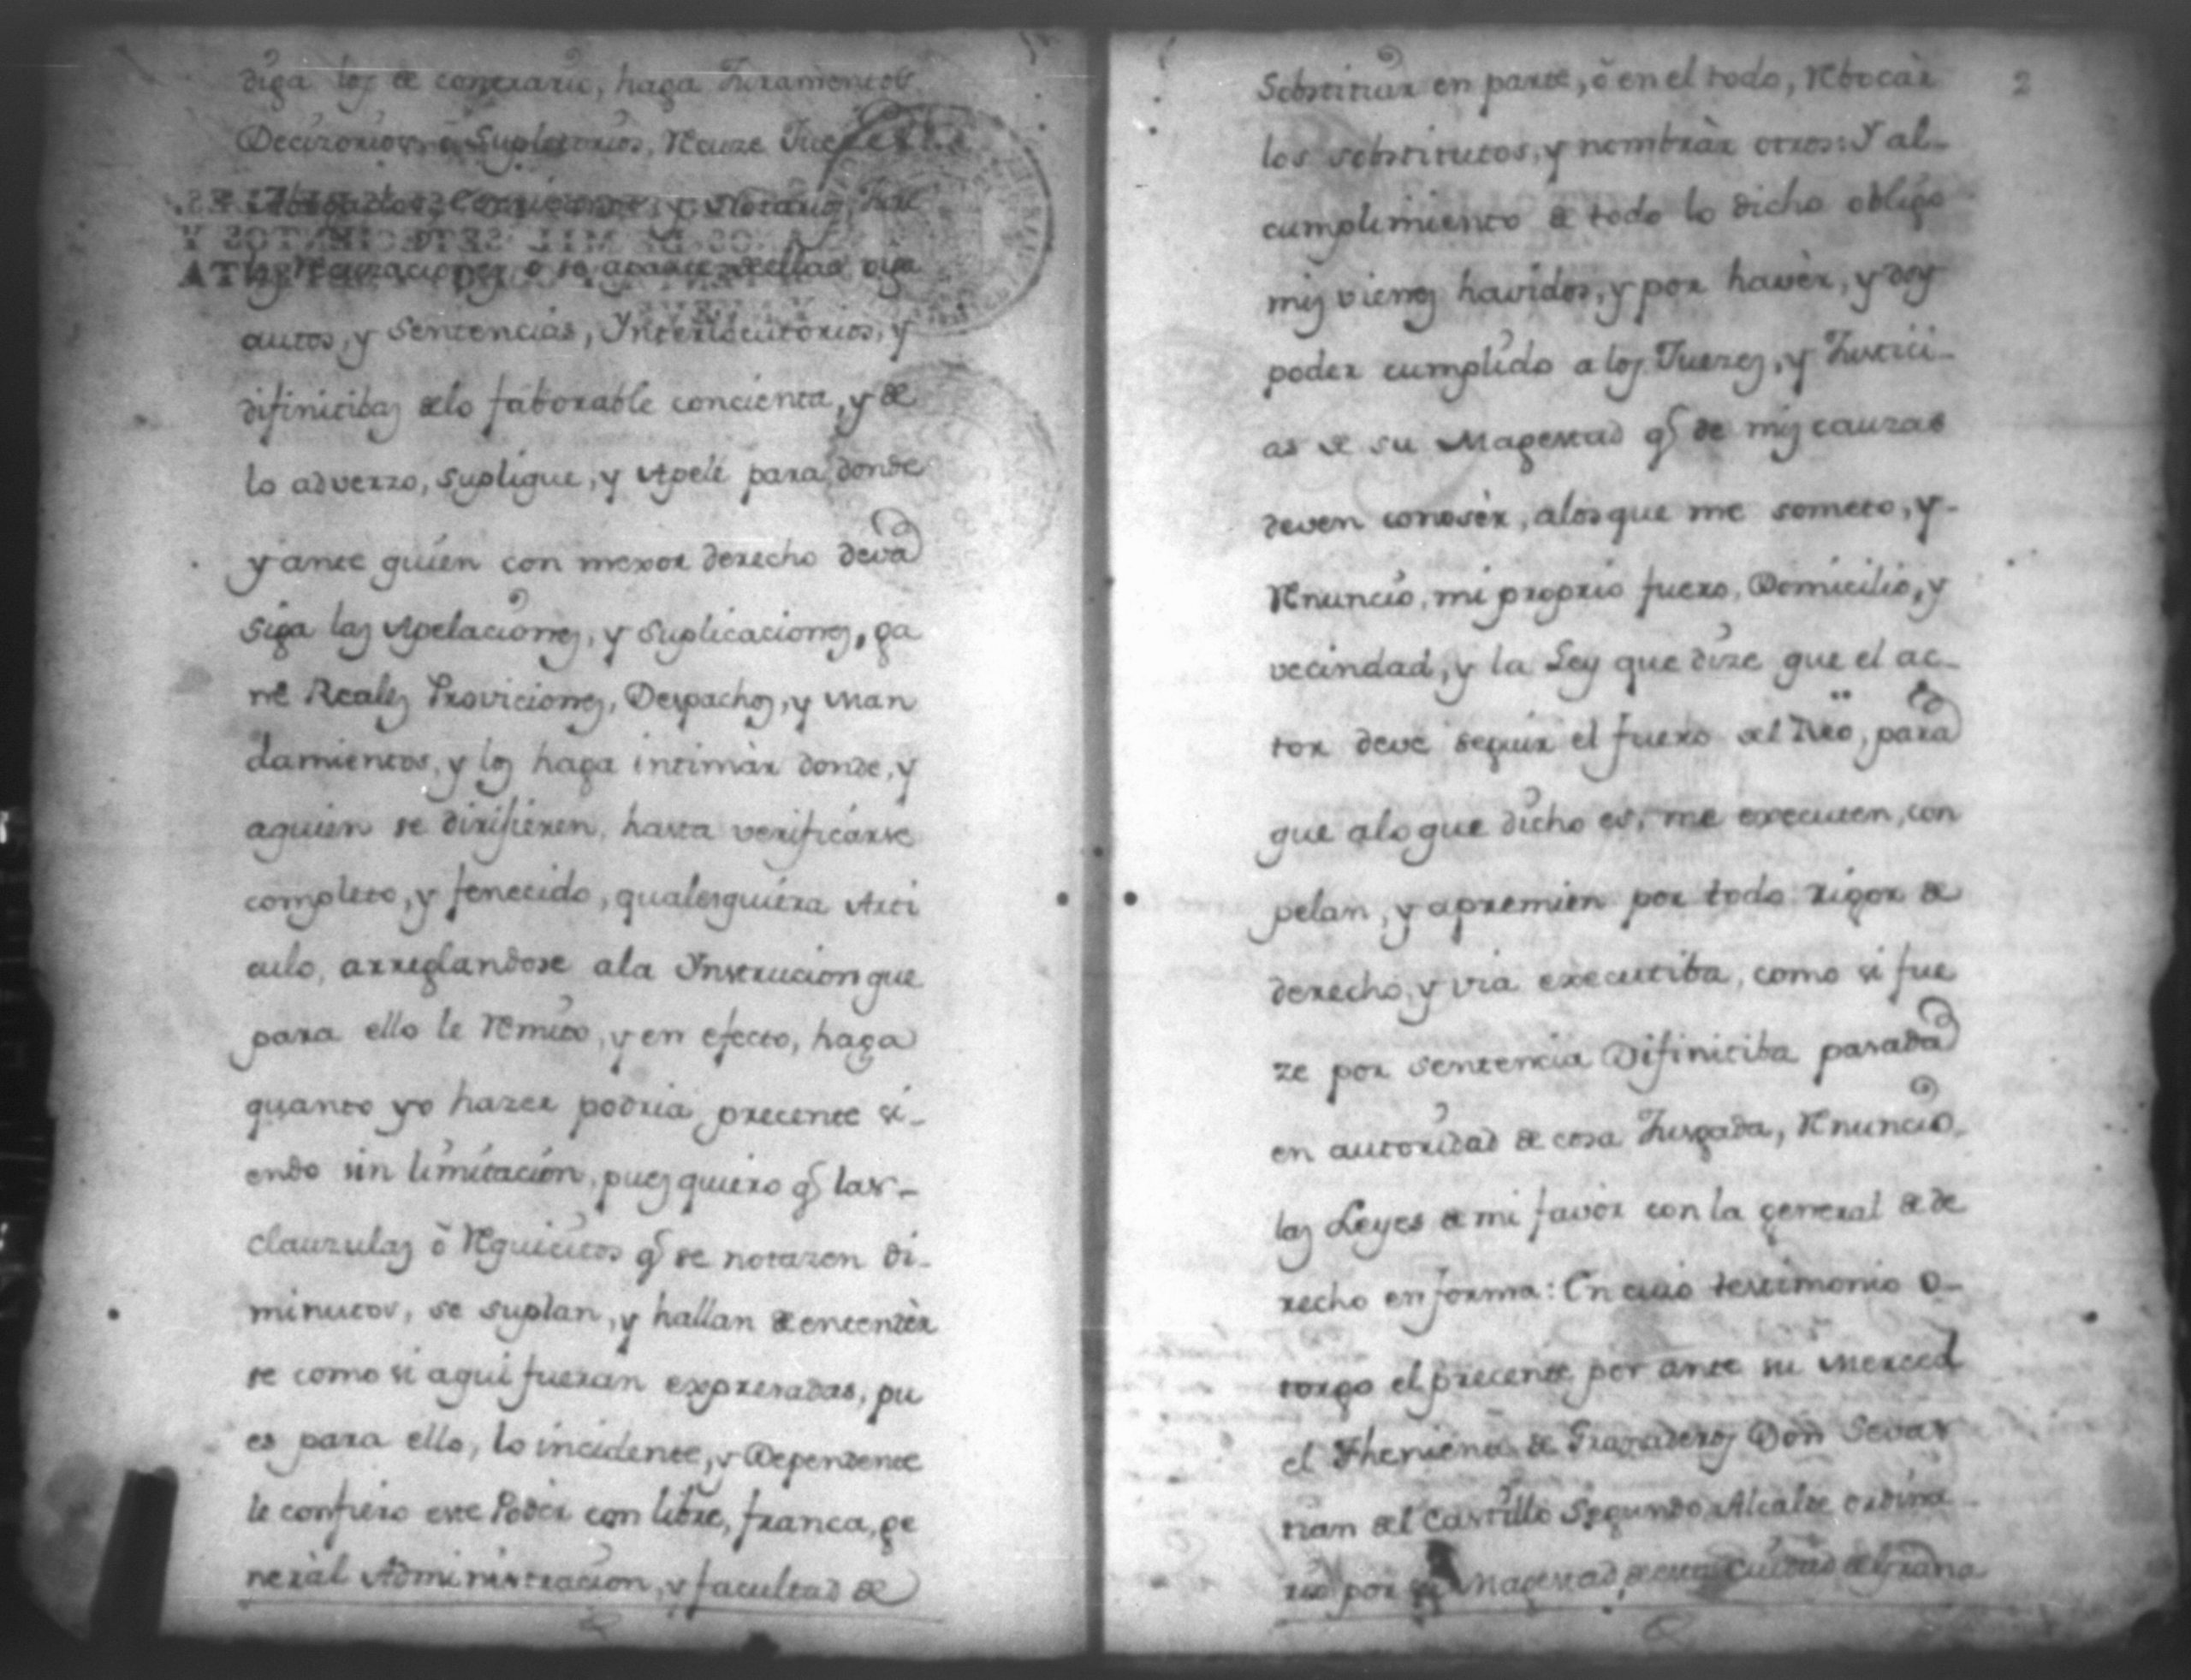 diga los de contrario, haga Juramentos
Decizorios, ò Supletorios, Recuze Jue
Abogados, y Notarios, Jure
las Recuzaciones, ò se aparte de ellas, oiga
autos, y Sentencias, Ynterlocutorios, y
difinitibas de lo faborable concienta, y de
lo adverzo, Suplique, y Apele para donde
y ante quien con mexor derecho deva
Siga las Apelaciones, y Suplicaciones, ga
ne Reales Proviciones, Despachos, y Man
damientos, y los haga intimàr donde, y
aquien se dirifieren, hasta verificarse
completo, y fenecido, qualesquiera Arti
culo, arreglandose ala Ynstrucion que
para ello le Remito, y en efecto, haga
quanto yo hazer podria precente si-
endo sin limitacion, pues quiero q.e las-
clauzulas ò Requicitos q.e se notaren di-
minutos, se suplan, y hallan de entendèr
se como si aqui fueran expresadas, pu
es para ello, lo incidente, y Dependente
le confiero este Poder con libre, franca, ge
neràl Administracion, y facultad de
2
Sobstituir en parte, ò en el todo, Rebocàr
los sobstitutos, y nombràr otros: Y al-
cumplimiento de todo lo dicho obligo
mis vienes havidos, y por havèr, y doy
poder cumplido a los Juezes, y Justici-
as de su Magestad q.e de mis cauzas
deven conosèr, alos que me someto, y-
Renuncio, mi proprio fuero, Domicilio, y
vecindad, y la Ley que dize que el ac-
tor deve seguir el fuero del Reo, para
que alo que dicho es, me executen, con
pelan, y apremien por todo rigor de
derecho, y via executiba, como si fue
ze por sentencia Difinitiba pasada
en autoridad de cosa Jusgada, Renuncio-
las Leyes de mi favòr con la general de de
recho en forma: En cuio testimonio o-
torgo el precente por ante su Merced
el Theniente de Granaderos Don Sevas
tian del Castillo Segundo Alcalde ordina-
rio por su Magestad de esta Ciudad de Grana-